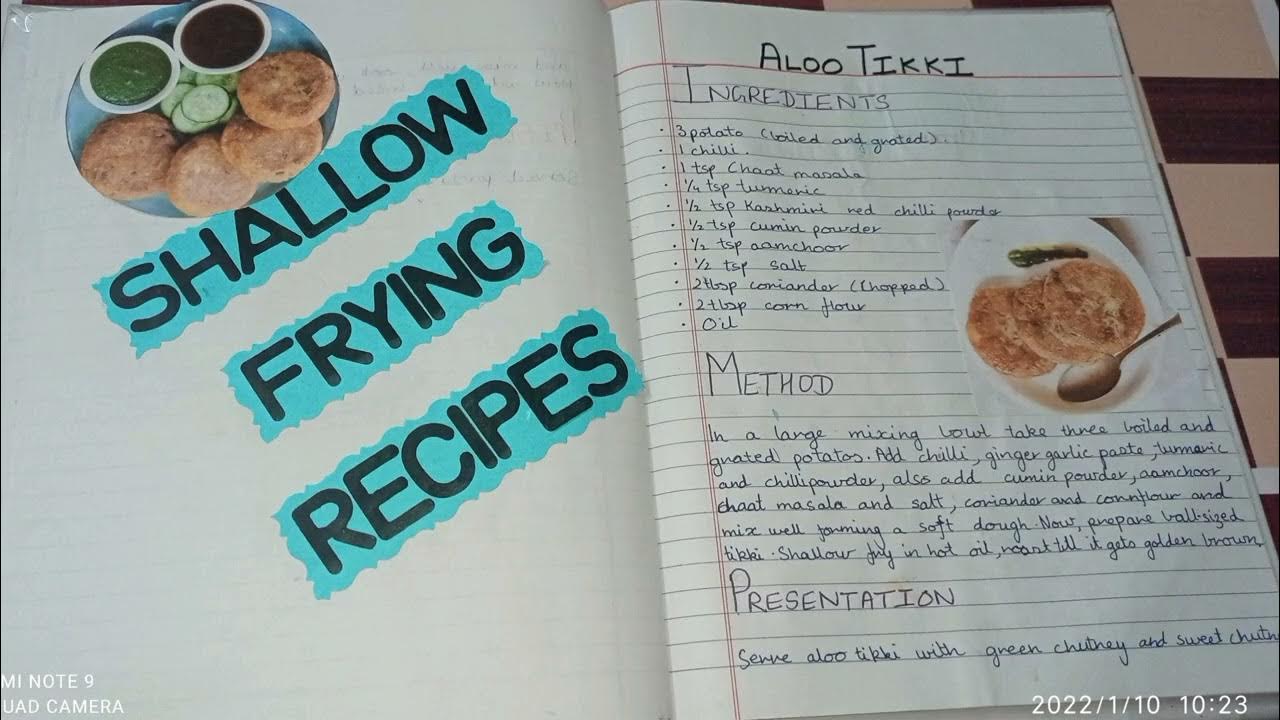 SHALLOW
FRYING
RECIPES
ALOO TIKKI
INGREDIENTS
· 3 potato (boiled and grated).
· 1 chilli.
· 1 tsp Chaat masala
· 1/4 tsp turmeric
· 1/2 tsp Kashmiri red chilli powder
· 1/2 tsp cumin powder
· 1/2 tsp aamchoor
· 1/2 tsp salt
· 2 tbsp coriander (Chopped)
· 2 tbsp corn flour
· Oil
METHOD
In a large mixing bowl take three boiled and
grated potatos. Add chilli, ginger garlic paste, turmeric
and chillipowder, also add cumin powder, aamchoor,
chaat masala and salt, coriander and cornflour and
mix well forming a soft dough. Now, prepare ball-sized
tikki. Shallow fry in hot oil, roast till it gets golden brown.
PRESENTATION
Serve aloo tikki with green chutney and sweet chutn
MI NOTE 9
UAD CAMERA
2022/1/10 10:23